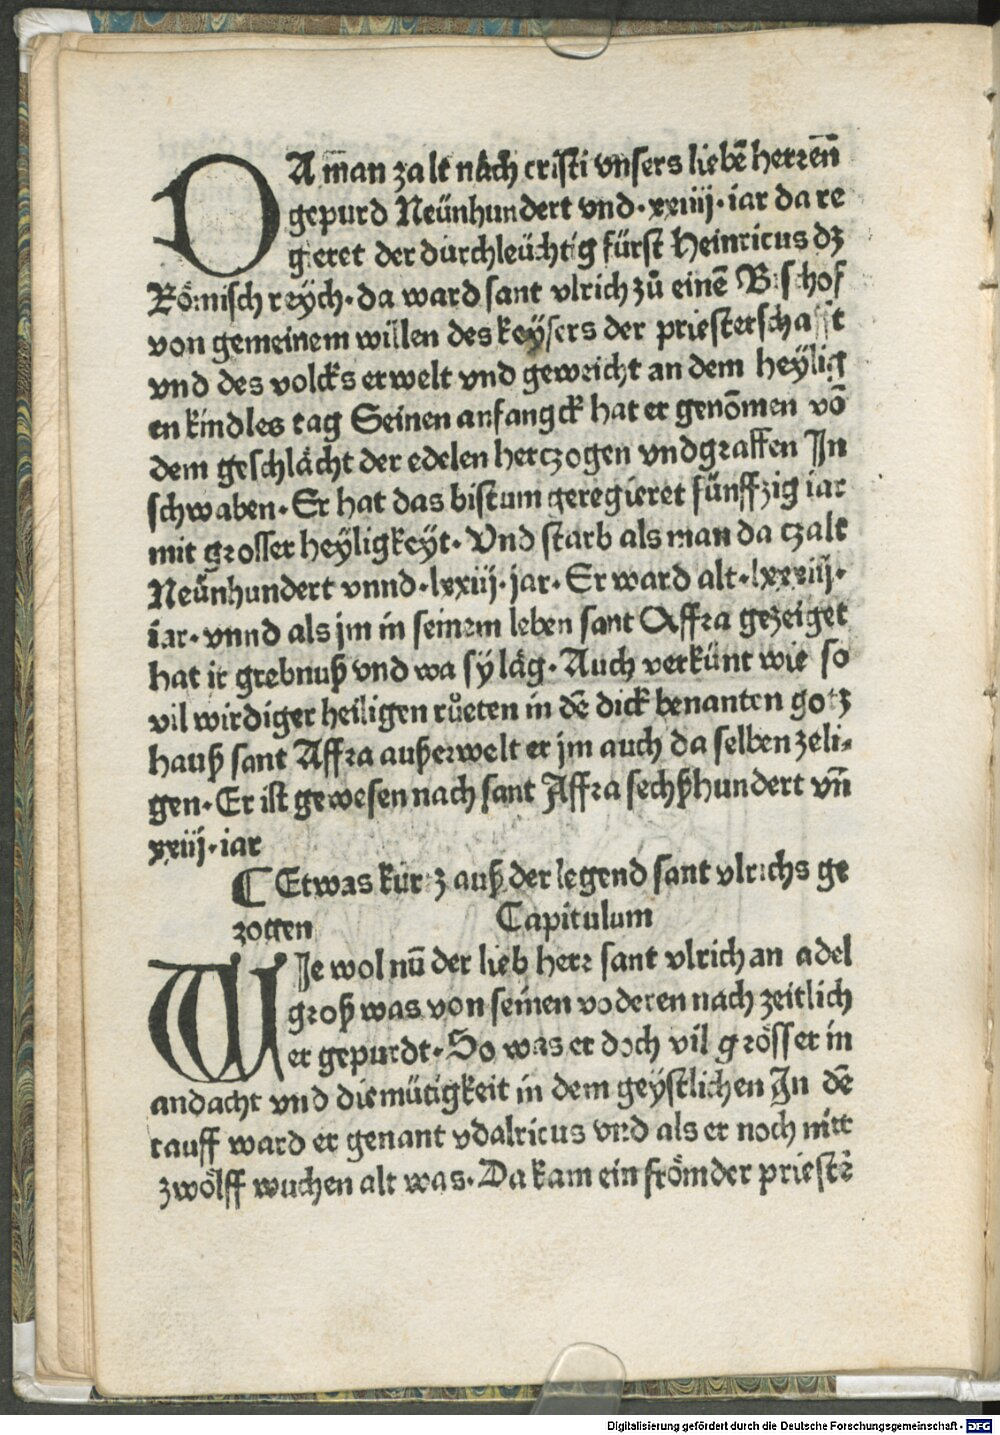 DA man zalt nach cristi vnsers liebē herrenn̄
gepurd Neünhundert vnd · xxiiij · iar da re
gieret der durchleüchtig fürst Heinricus dz
Römisch reych · da ward sant vlrich zů einē Bischof
von gemeinem willen des keysers der priesterschafft
vnd des volcks erwelt vnd gewricht an dem heÿlig
en kindles tag Seinen anfangck hat er genōmen vō
dem geschlächt der edelen hertzogen vnd graffen In
schwaben · Er hat das bistum geregieret fünffzig iar
mit grosser heÿligkeyt · Vnd starb als man da czalt
Neünhundert vnnd · lxxiij · jar · Er ward alt · lxxxiij ·
iar · vnnd als jm in seinem leben sant Affra gezeiget
hat ir grebnuß vnd wa sÿ läg · Auch verkünt wie so
vil wirdiger heiligen růeten in dē dick benanten gotz
hauß sant Affra außerwelt er jm auch da selben zeli-
gen · Er ist gewesen nach sant Affra sechßhundert vn̄
xxiij · iar
¶ Etwas kürtz auß der legend sant vlrichs ge
zogen Capitulum
WIe wol nū der lieb herr sant vlrich an adel
groß was von seinen voderen nach zeitlich
er gepurdt · So was er doch vil grösser in
andacht vnd diemütigkeit in dem geÿstlichen In dē
tauff ward er genant vdalricus vnd als er noch nitt
zwölff wuchen alt was · Da kam ein frömder priestē
Digitalisierung gefördert durch die Deutsche Forschungsgemeinschaft - DFG